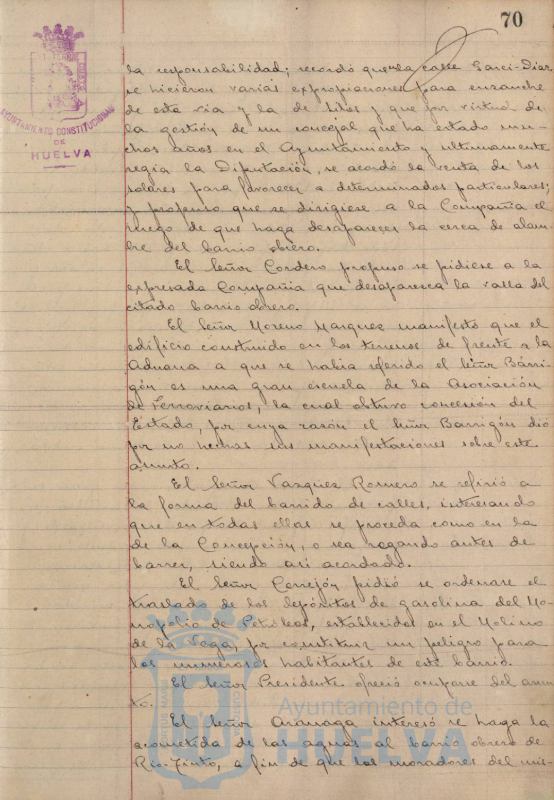 70
AYUNTAMIENTO CONSTITUCIONAL
DE
HUELVA
la responsabilidad; recordó que la calle Garci-Diaz
se hicieron varias expropiaciones para ensanche
de esta via y la de Silos y que por virtud de
la gestión de un concejal que ha estado mu-
chos años en el Ayuntamiento y ultimamente
regia la Diputación, se acordó la venta de los
solares para favorecer a determinados particulares;
y propuso que se dirigiese a la Compañia el
ruego de que haga desaparecer la cerca de alam-
bre del barrio obrero.
El Señor Cordero propuso se pidiese a la
expresada Compañia que desaparezca la valla del
citado barrio obrero.
El Señor Moreno Marquez manifestó que el
edificio construido en los terrenos de frente a la
Aduana a que se habia referido el Señor Barri-
gón es una gran escuela de la Asociación
de Ferroviarios, la cual obtuvo concesión del
Estado, por cuya razón el Señor Barrigón dió
por no hechas sus manifestaciones sobre este
asunto.
El Señor Vazquez Romero se refirió a
la forma del barrido de calles, interesando
que en todas ellas se proceda como en la
de la Concepción, o sea regando antes de
barrer, siendo asi acordado.
El Señor Cerrejón pidió se ordenase el
traslado de los depósitos de gasolina del Mo-
nopolio de Petróleos, establecidos en el Molino
de la Vega, por constituir un peligro para
los numerosos habitantes de este barrio.
El Señor Presidente ofreció ocuparse del asun-
to.
El Señor Aranaga interesó se haga la
acometida de las aguas al barrio obrero de
Rio-Tinto, a fin de que los moradores del mis-
Ayuntamiento de
HUELVA